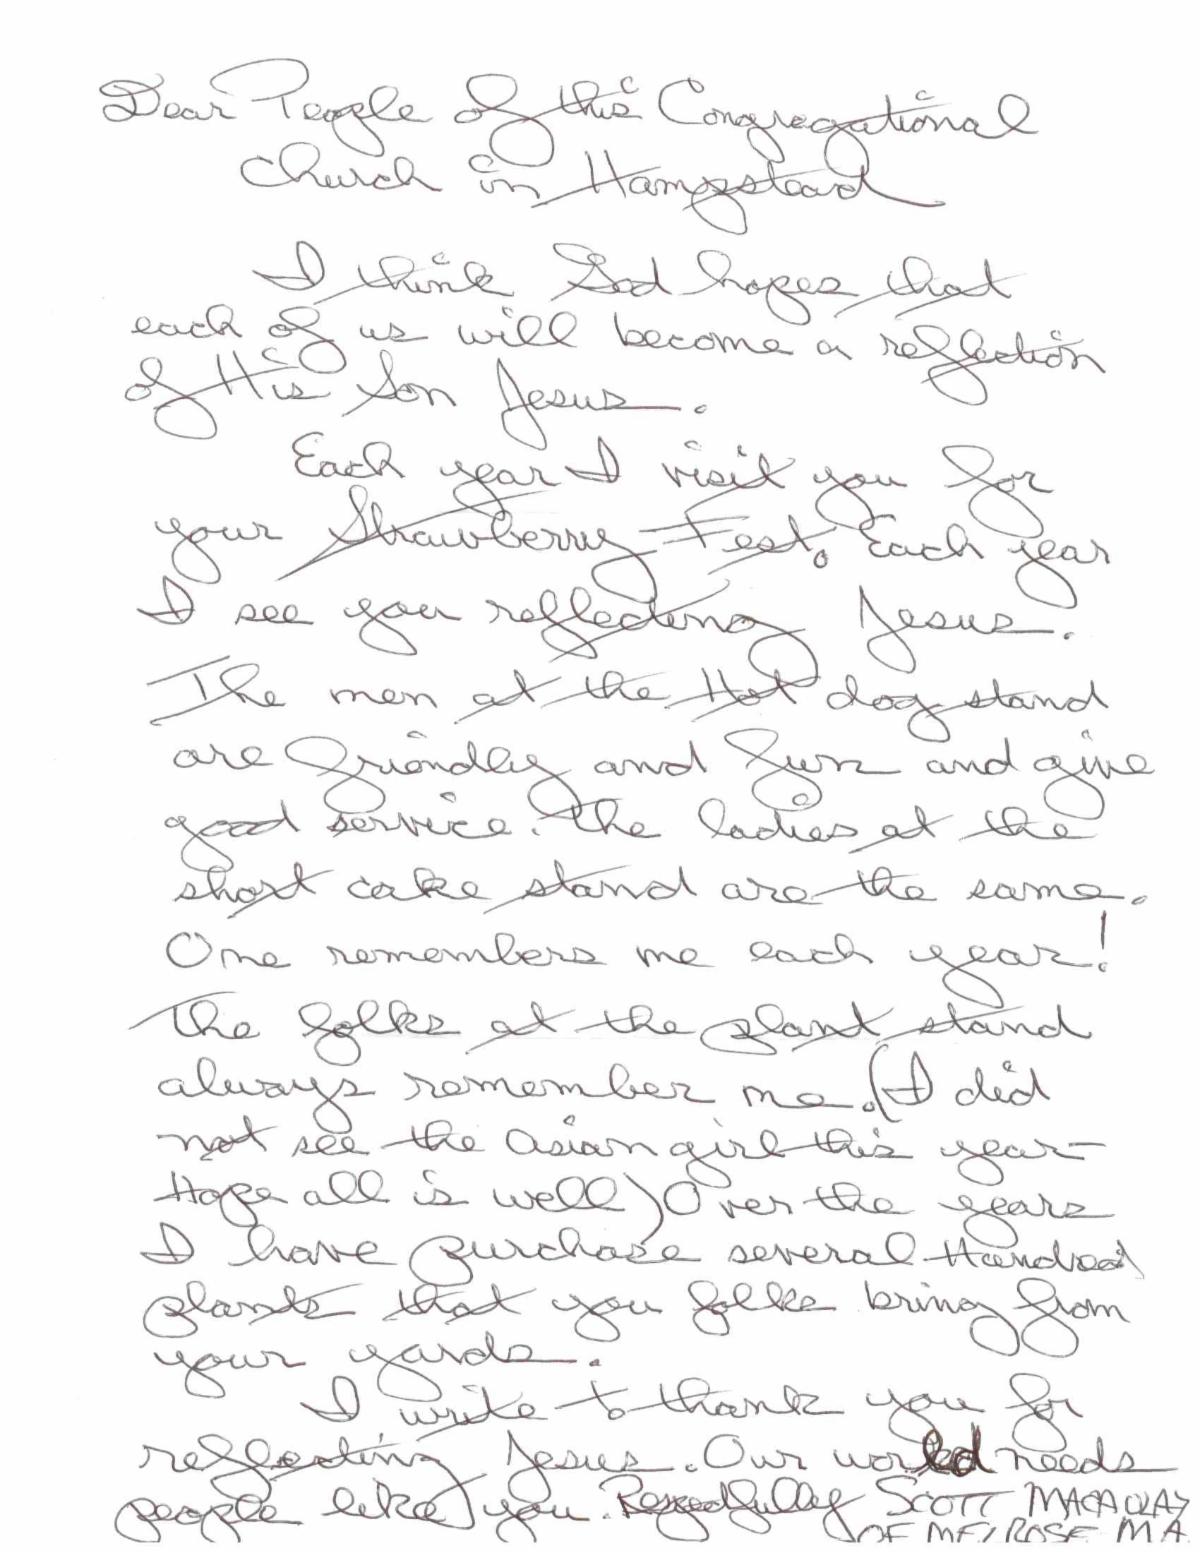 Dear People of this Congregational
Church in Hampstead
I think God hopes that
each of us will become a reflection
of His Son Jesus.
Each year I visit you for
your Strawberry Fest. Each year
I see you reflecting Jesus.
The men at the Hot dog stand
are friendly and fun and give
good service. The ladies at the
short cake stand are the same.
One remembers me each year!
The folks at the plant stand
always remember me. (I did
not see the asian girl this year -
Hope all is well) Over the years
I have purchase several Hundred
plants that you folks bring from
your yards.
I write to thank you for
reflecting Jesus. Our world needs
people like you. Respectfully SCOTT MACAULAY
OF MELROSE MA